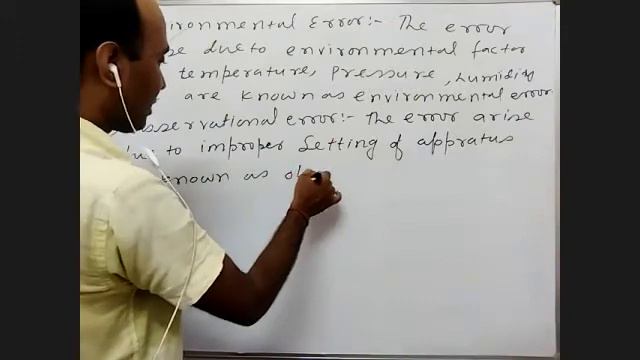 ironmental Error:- The error
se due to environmental factor
temperature, pressure, humidity
are known as environmental error
bservational error:- The error arise
due to improper setting of appratus
known as ob